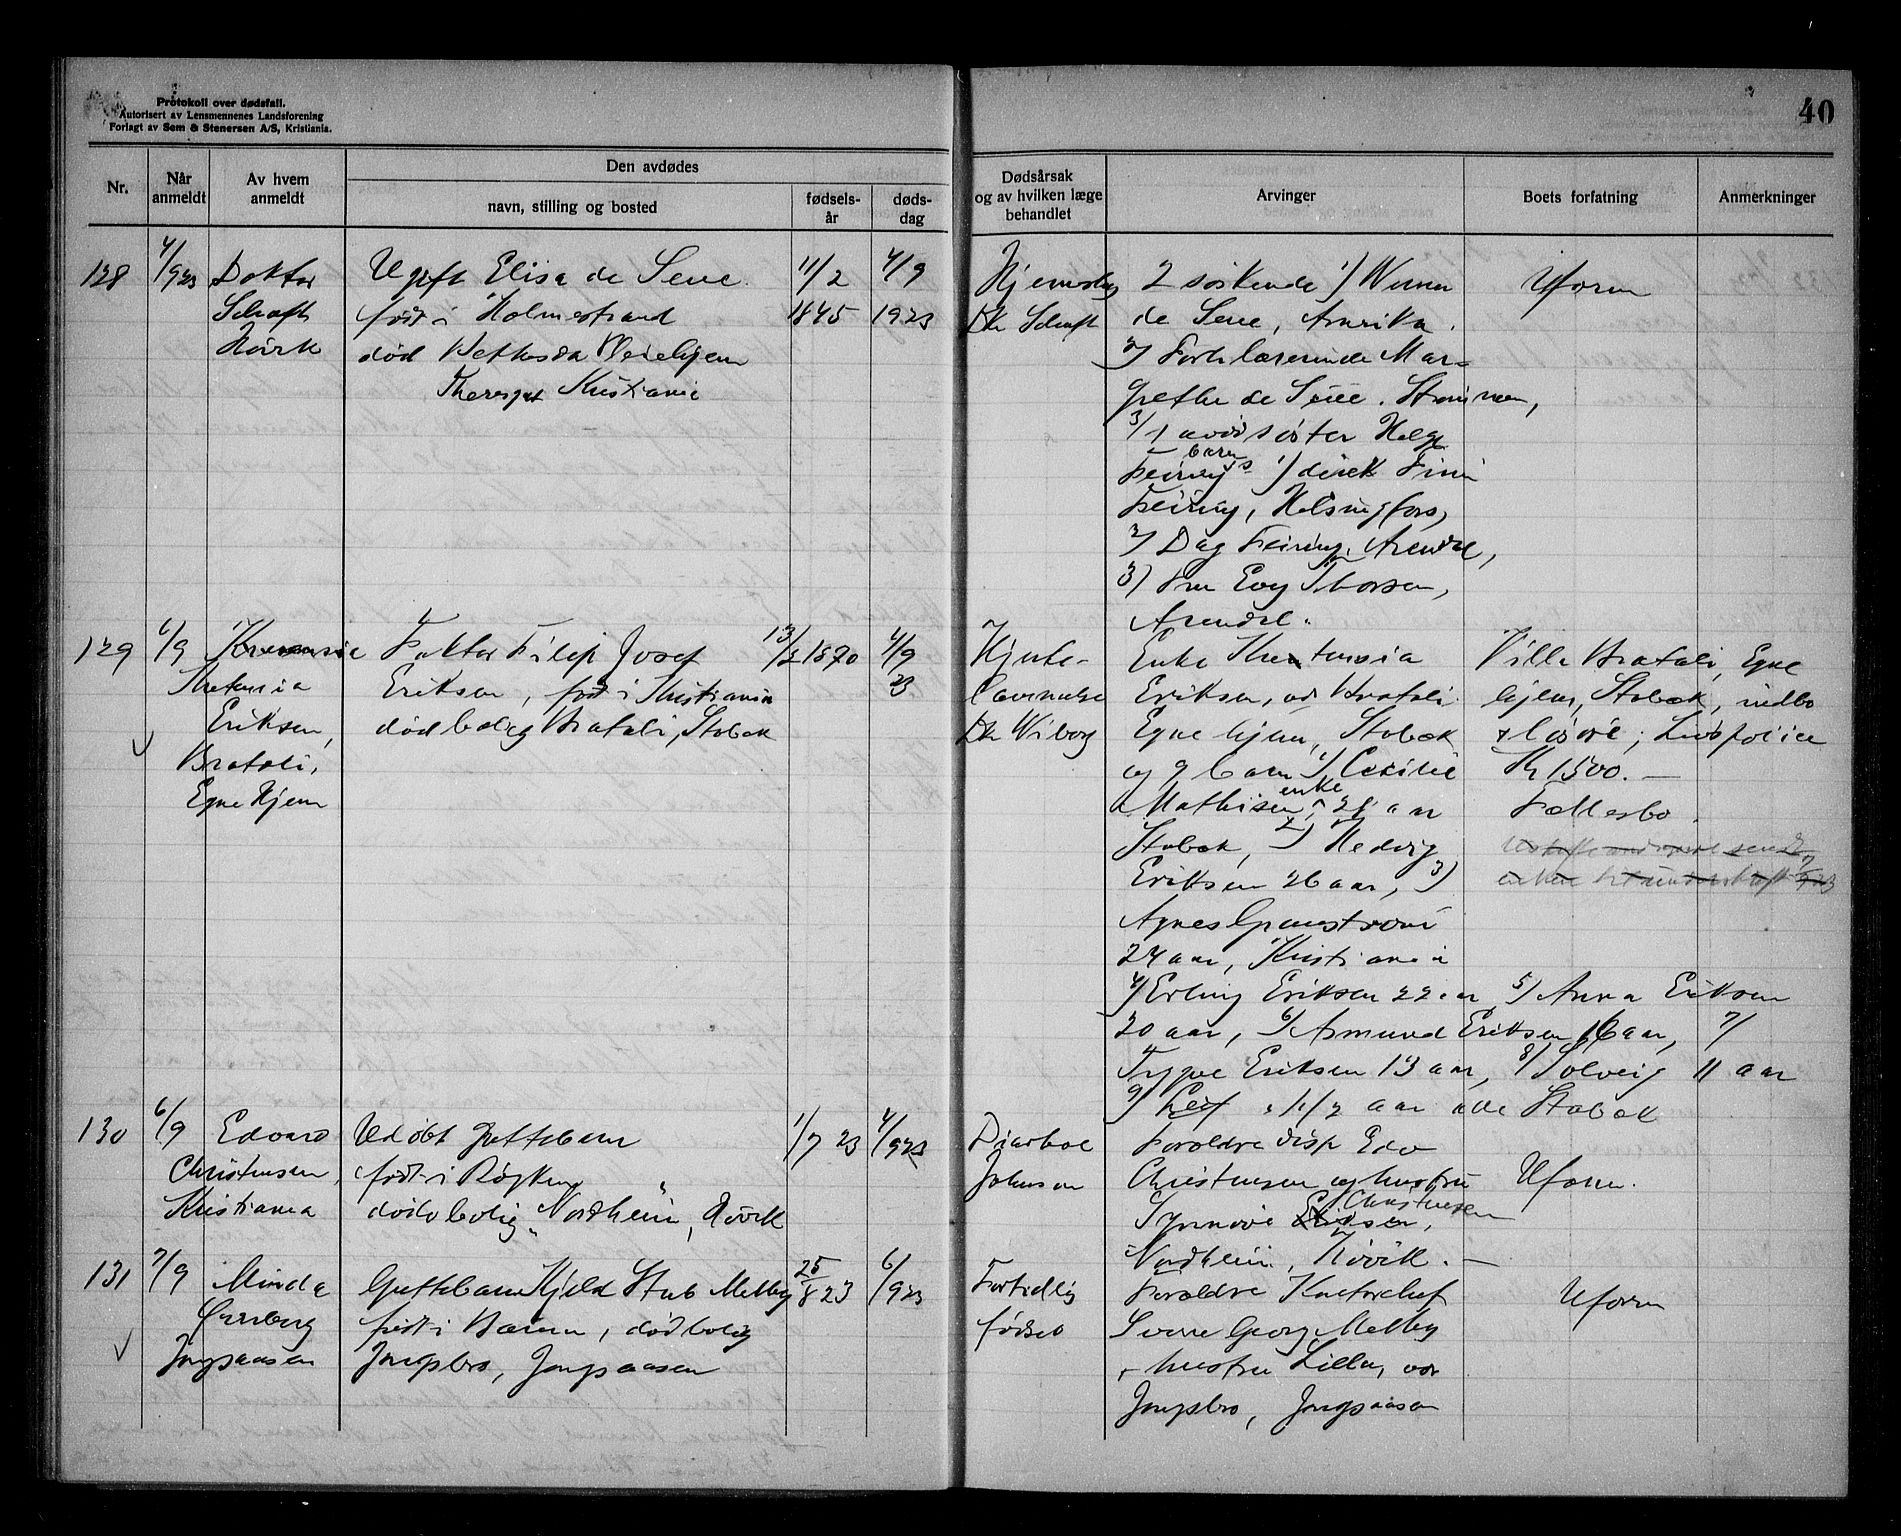 Protokoll over dødsfall.
Autorisert av Lensmennenes Landsforening
Forlagt av Sem & Stenersen A/S, Kristiania.
40
Nr.
Når anmeldt
Av hvem anmeldt
Den avdødes
navn, stilling og bosted
fødsels-år
døds-dag
Dødsårsak og av hvilken læge behandlet
Arvinger
Boets forfatning
Anmerkninger
128
4/9 23
Doktor
Schaft
Høvik
Ugift Elisa de Seue
født i Holmestrand
død Bethesda Pleiehjem
Theresgt Kristiania
11/2
1845
4/9
1923
Hjerneslag
Dr Schaft
2 søskende 1)
de Seue, Amerika.
2) Forh lærerinde Mar-
grethe de Seue. Strømmen,
3/ 1 avdød søster Helga
Feirings barn 1) direk Finn
Feiring, Helsingfors,
2) Dag Feiring, Arendal,
3) Fru Evy Thorsen,
Arendal.
Uform
129
6/9
Eriksen,
Bratali,
Egne Hjem
Faktor Filip Josef
Eriksen, født i Kristiania
død bolig Bratali, Stabæk
13/2 1870
4/9
23
Hjerte-
Dr Wiborg
Enke
Eriksen, ad Bratali
Egne hjem, Stabæk
og 9 barn 1) Cecilie
Mathisen, enke 28 aar
Stabæk, 2) Hedvig
Eriksen 26 aar, 3)
Agnes
24 aar, Kristiania
4) Erling Eriksen 22 aar 5) Anna Eriksen
20 aar, 6) Asmund Eriksen 16 aar, 7/
Trygve Eriksen 13 aar, 8/ Solveig 11 aar
9) Leif 1/2 aar alle Stabæk
Villa Bratali, Egne
hjem, Stabæk, indbo
& løsøre; Livspolice
Kr 1500.—
Fællesbo.
130
6/9
Edvard
Christensen,
Kristiania
Udøbt guttebarn
født i Røyken
død bolig Nordheim, Høvik
1/7 23
4/9 23
Diarhoe
Johnson
Forældre disp Edv
Christensen og hustru
Synnøve Christensen,
Nordheim, Høvik.—
Uform.
131
7/9
Minda
Jongsaasen
Guttebarn Kjeld Stub Melby
født i Bærum, død bolig
Jongsbro, Jongsaasen
25/8 23
6/9 23
Fortidlig
fødsel
Forældre Kontorchef
Sverre Georg Melby
& hustru Lilla, adr
Jongsbro, Jongsaasen
Uform